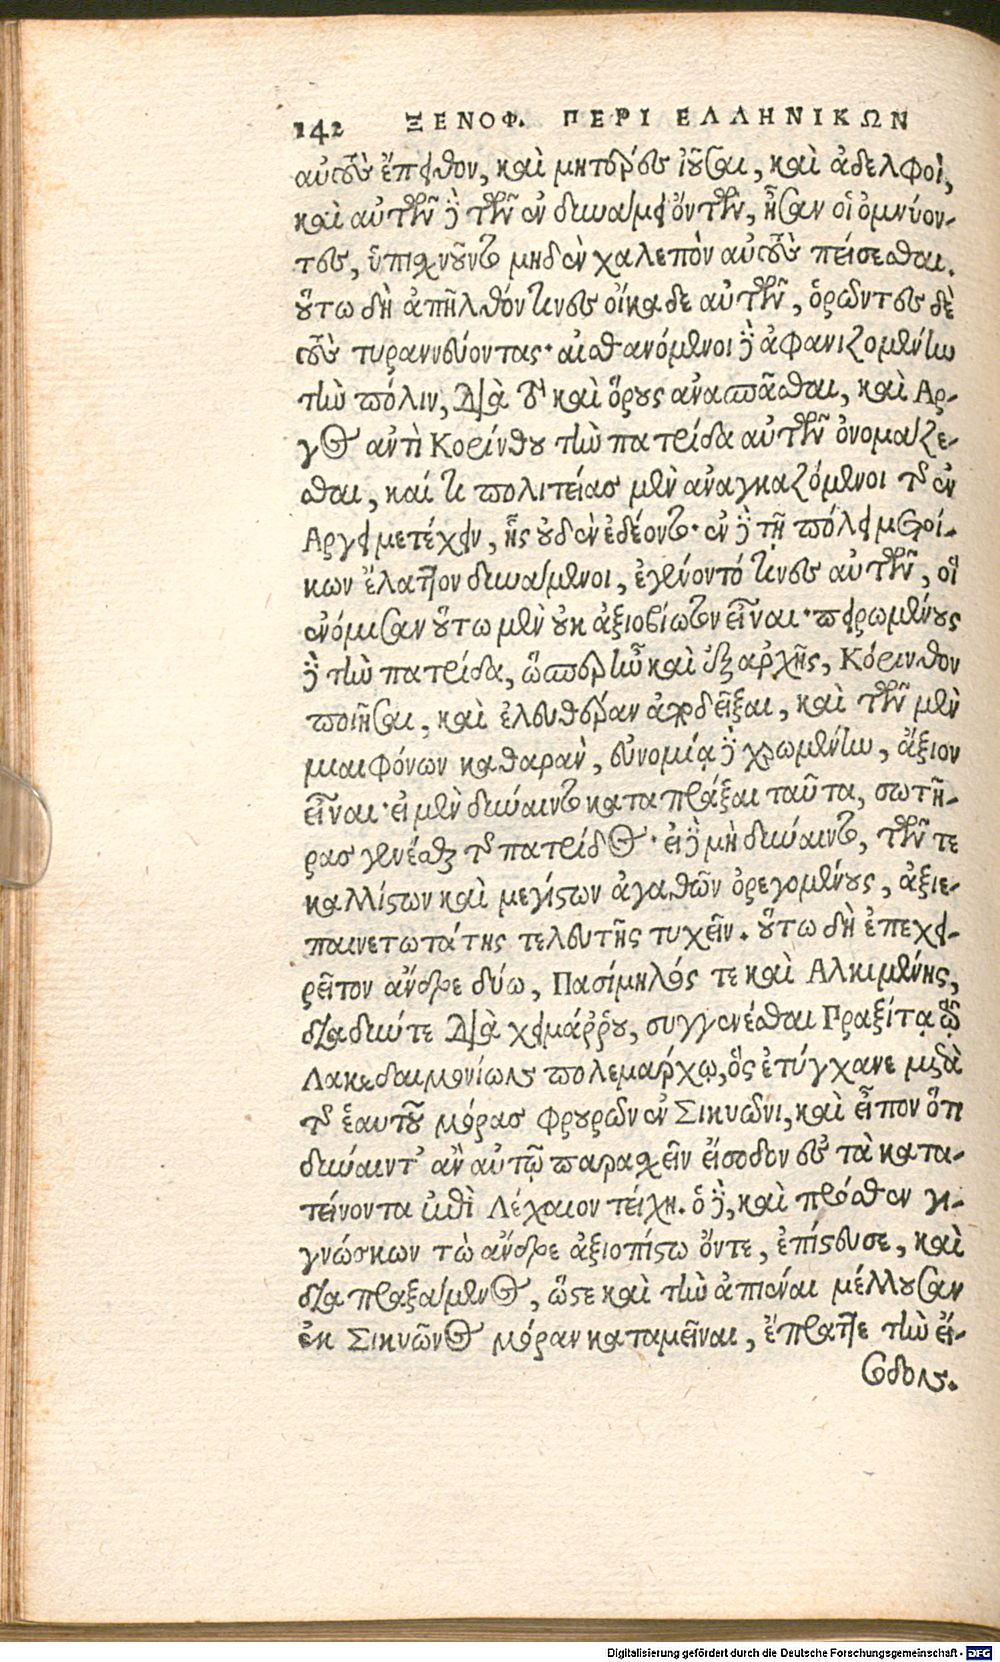 142 ΞΕΝΟΦ. ΠΕΡΙ ΕΛΛΗΝΙΚΩΝ
αὐτοὺς ἔπειθον, καὶ μητέρες ἰοῦσαι, καὶ ἀδελφοὶ,
καὶ αὐτῶν δὲ τῶν ἐν δυνάμει ὄντων, ἦσαν οἱ ὀμνύον-
τες, ὑπισχνοῦντο μηδὲν χαλεπὸν αὐτοὺς πείσεσθαι.
οὕτω δὴ ἀπῆλθόν τινες οἴκαδε αὐτῶν, ὁρῶντες δὲ
τοὺς τυραννεύοντας· αἰσθανόμενοι δὲ ἀφανιζομένην
τὴν πόλιν, διὰ τὸ καὶ ὅρους ἀνασπᾶσθαι, καὶ Αρ-
γος αντὶ Κορίνθου τὴν πατρίδα αὐτῶν ὀνομάζε-
σθαι, καί τι πολιτείας μὲν ἀναγκαζόμενοι τῆς ἐν
Αργει μετέχειν, ἧς οὐδὲν ἐδέοντο· ἐν δὲ τῇ πόλει μετοί-
κων ἔλαττον δυνάμενοι, ἐγένοντό τινες αὐτῶν, οἳ
ἐνόμισαν οὕτω μὲν οὐκ ἀξιοβίωτον εἶναι· πειρωμένους
δὲ τὴν πατρίδα, ὥσπερ ἦν καὶ ἐξ ἀρχῆς, Κόρινθον
ποιῆσαι, καὶ ἐλευθέραν ἀποδεῖξαι, καὶ τῶν μὲν
μιαιφόνων καθαρὰν, εὐνομίᾳ δὲ χρωμένην, ἄξιον
εἶναι· εἰ μὲν δύναιντο καταπρᾶξαι ταῦτα, σωτῆ-
ρας γενέσθαι τῆς πατρίδος· εἰ δὲ μὴ δύναιντο, τῶν τε
καλλίστων καὶ μεγίστων ἀγαθῶν ὀρεγομένους, ἀξιε-
παινετωτάτης τελευτῆς τυχεῖν. οὕτω δὴ ἐπεχει-
ρεῖτον ἄνδρε δύω, Πασίμηλός τε καὶ Αλκιμένης,
διαδύντε διὰ χειμάρρου, συγγενέσθαι Πραξίτᾳ τῷ
Λακεδαιμονίων πολεμάρχῳ, ὃς ἐτύγχανε μετὰ
τῆς ἑαυτοῦ μόρας φρουρῶν ἐν Σικυῶνι, καὶ εἶπον ὅτι
δύναιντ᾽ ἂν αὐτῷ παρασχεῖν εἴσοδον εἰς τὰ κατα-
τείνοντα ἐπὶ Λέχαιον τείχη. ὁ δὲ, καὶ πρόσθεν γι-
γνώσκων τὼ ἄνδρε ἀξιοπίστω ὄντε, ἐπίστευσε, καὶ
διαπραξάμενος, ὥστε καὶ τὴν ἀπιέναι μέλλουσαν
ἐκ Σικυῶνος μόραν καταμεῖναι, ἔπραττε τὴν εἴ-
σοδον.
Digitalisierung gefördert durch die Deutsche Forschungsgemeinschaft - DFG